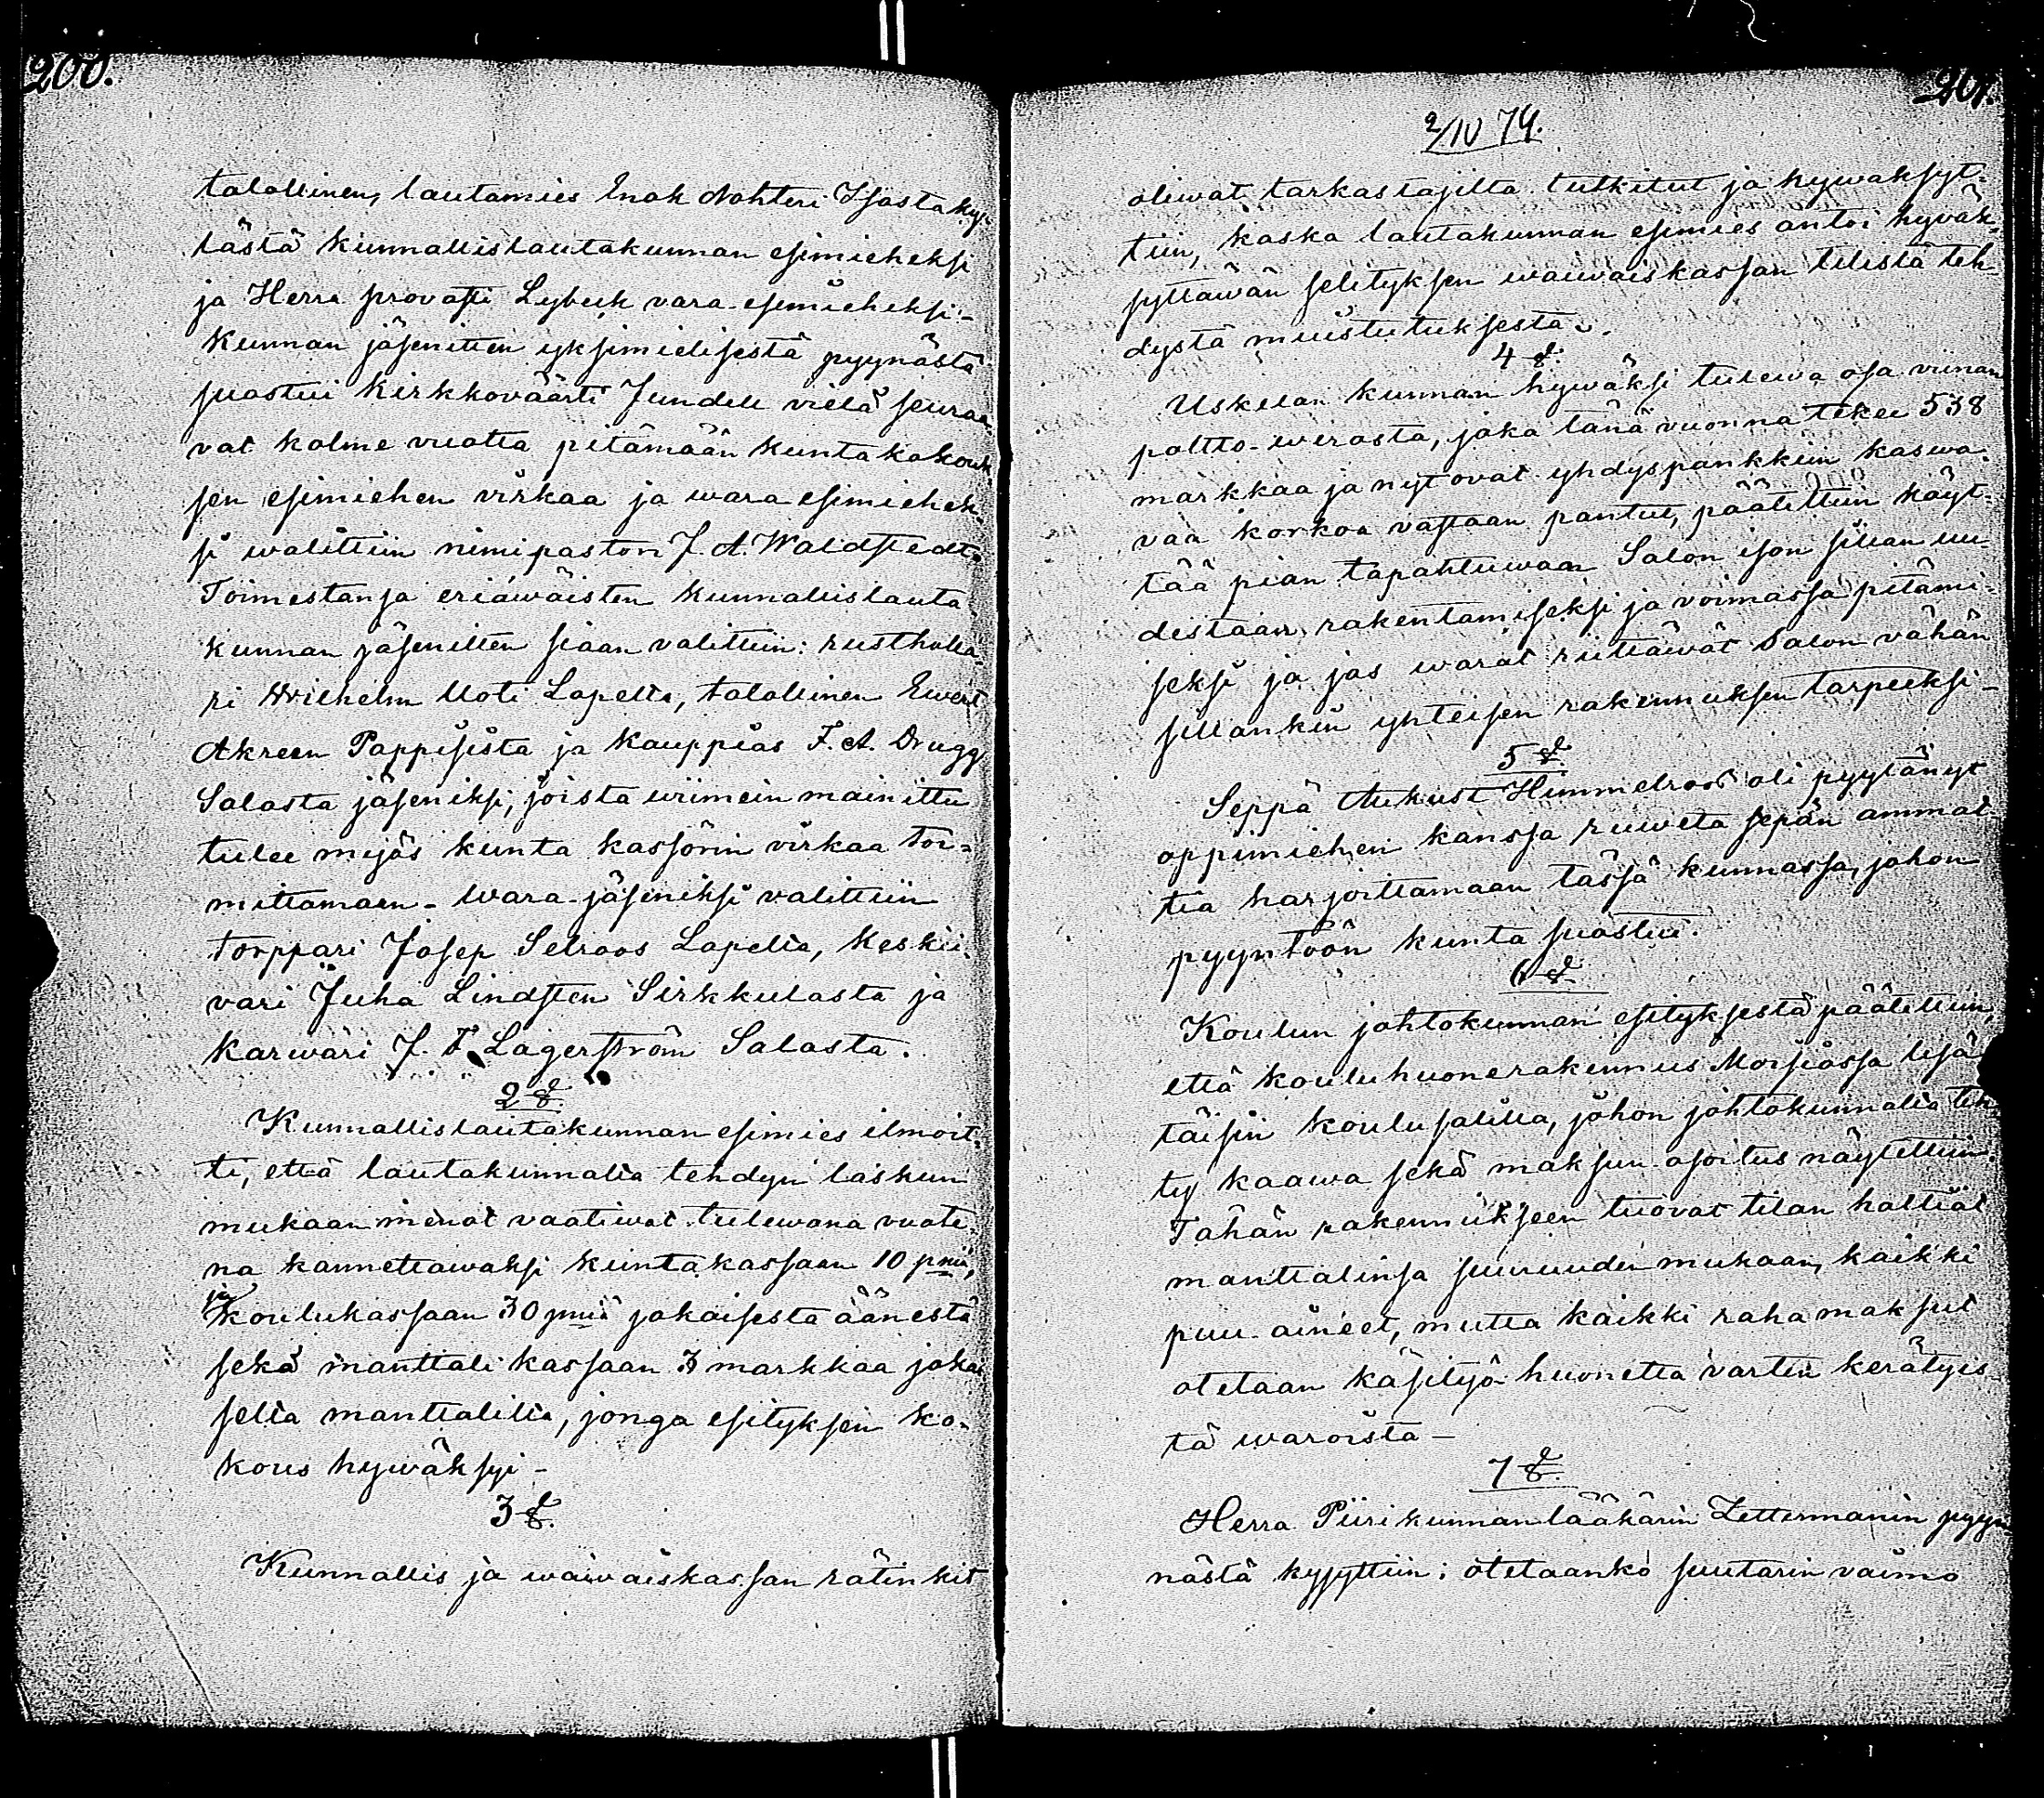 200.
talollinen, lautamies Enok Nohteri Isostaky-
lästä kunnallislautakunnan esimieheksi
ja Herra provasti Lybeck vara-esimieheksi-
Kunnan jäsenitten yksimielisestä pyynästä
suostui Kirkkoväärti Jundell vielä seuraa-
vat kolme vuotta pitämään kuntakokouk-
sen esimiehen virkaa ja wara esimiehek-
si walittiin nimipastori J. A. Waldstedt.
Toimestanja eriäwäisten kunnallislauta-
kunnan jäsenitten siaan valittiin: rusthola-
ri Wilhelm Uoti Lapelta, talollinen Ewert
Akreen Pappisista ja Kauppias F. A. Drugg
Salosta jäseniksi, joista wiimein mainittu
tulee myös kunta kassörin virkaa toi-
mittamaan- Wara-jäseniksi valittiin
torppari Josep Selroos Lapelta, Keskii-
vari Juha Lindsten Sirkkulasta ja
Karwari J. F. Lagerström Salosta.
2 §.
Kunnallislautakunnan esimies ilmoit-
ti, että lautakunnalta tehdyn laskun
mukaan menot vaatiwat tulewana vuote-
na kannettawaksi kuntakassaan 10 pniä,
ja
Koulukassaan 30 pniä jokaisesta äänestä
sekä manttali kassaan 3 markkaa jokai
selta manttalilta, jonga esityksen ko-
kous hywäksyi-
3 §.
Kunnallis ja waiwaiskassan rätinkit
201.
2/IV 74.
oliwat tarkastajilta tutkitut ja hywaksyt-
tiin, koska lautakunnan esimies antoi hyväk-
syttäwän selityksen waiwaiskassan tilistä teh-
dystä muistutuksesta.
4 §.
Uskelan kunnan hywäksi tulewa osa viinan
poltto-werosta, joka tänä vuonna tekee 538
markkaa ja nyt ovat yhdyspankkiin kaswa-
vaa korkoa vastaan pantut, päätettiin käyt-
tää pian tapahtuwaan Salon ison sillan uu-
destaan rakentamiseksi ja voimassa pitämi-
seksi ja jos warat riittäwät Salon vähän
sillankin yhteisen rakennuksen tarpeeksi-
5 §.
Seppä Aukust Himmelroos oli pyytänyt
oppimiehen kanssa ruweta sepän ammat-
tia harjoittamaan tässä kunnassa, johon
pyyntöön kunta suostui.
6 §
Koulun johtokunnan esityksestä päätettiin,
että kouluhuonerakennus Moisiossa lisä-
täisiin koulusalilla, johon johtokunnalta teh-
ty kaawa sekä maksun-osoitus näytettiin.
Tähän rakennukseen tuovat tilan haltiat
manttalinsa suuruuden mukaan, kaikki
puu-aineet, mutta kaikki rahamaksut
otetaan käsityö-huonetta varten kerätyis-
tä waroista-
7 §.
Herra Piirikunnan lääkärin Zettermanin pyyn
nöstä kysyttiin: otetaanko suutarin vaimo